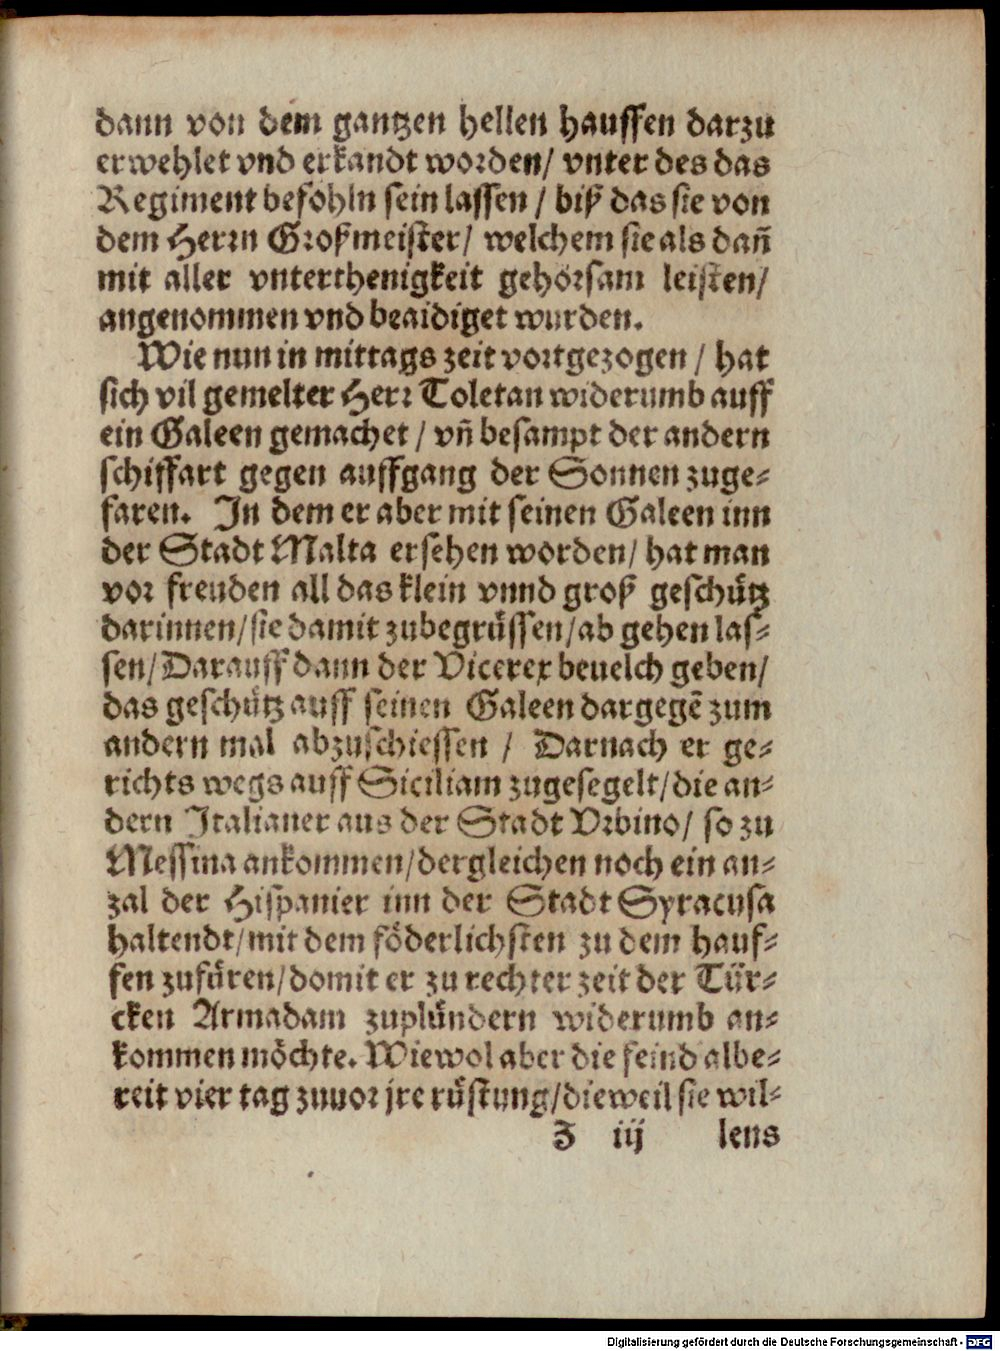 dann von dem gantzen hellen hauffen darzu
erwehlet vnd erkandt worden/ vnter des das
Regiment befohln sein lassen / biß das sie von
dem Herrn Großmeister/ welchem sie als dañ
mit aller vnterthenigkeit gehorsam leisten/
angenommen vnd beaidiget wurden.
Wie nun in mittags zeit vortgezogen / hat
sich vil gemelter Herr Toletan widerumb auff
ein Galeen gemachet / vñ besampt der andern
schiffart gegen auffgang der Sonnen zuge-
faren. In dem er aber mit seinen Galeen inn
der Stadt Malta ersehen worden/ hat man
vor freuden all das klein vnnd groß geschütz
darinnen/ sie damit zubegrüssen/ ab gehen las-
sen/ Darauff dann der Vicerex beuelch geben/
das geschütz auff seinen Galeen dargegē zum
andern mal abzuschiessen / Darnach er ge-
richts wegs auff Siciliam zugesegelt/ die an-
dern Italianer aus der Stadt Vrbino/ so zu
Messina ankommen/ dergleichen noch ein an-
zal der Hispanier inn der Stadt Syracusa
haltendt/ mit dem föderlichsten zu dem hauf-
fen zufüren/ domit er zu rechter zeit der Tür-
cken Armadam zuplündern widerumb an-
kommen möchte. Wiewol aber die feind albe-
reit vier tag zuuor jre rüstung/ dieweil sie wil-
Z iij lens
Digitalisierung gefördert durch die Deutsche Forschungsgemeinschaft - DFG